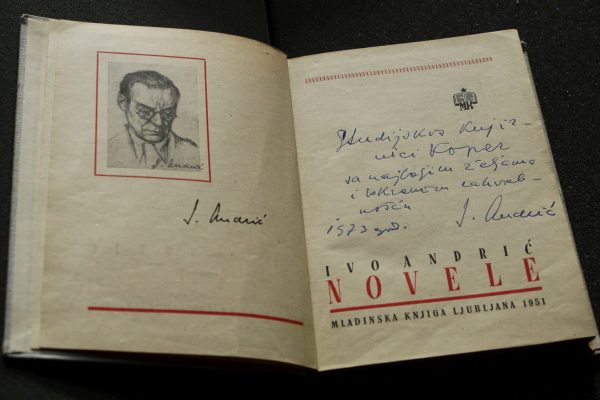 I. Andrić
I. Andrić
MK
Studijskoj Knjiž-
nici Koper
sa najboljim željama
i iskrenom zahval-
nošću
1973 god. I. Andrić
IVO ANDRIĆ
NOVELE
MLADINSKA KNJIGA LJUBLJANA 1951